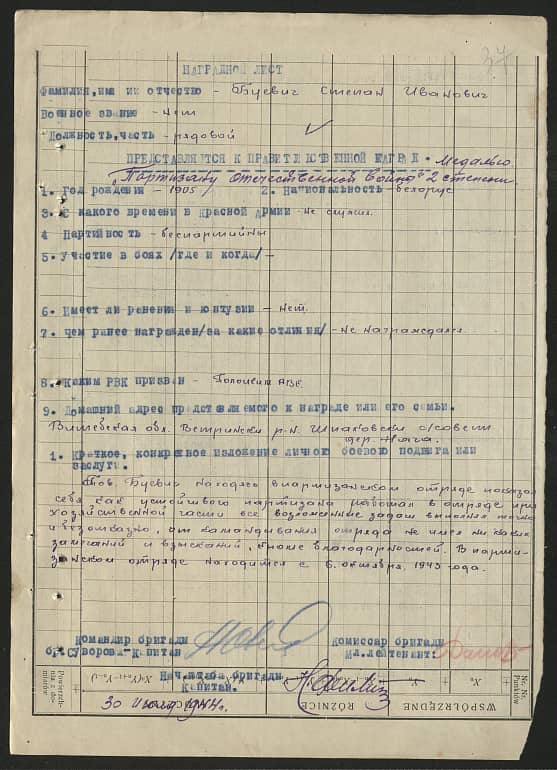 37
НАГРАДНОЙ ЛИСТ
Фамилия, имя и отчество - Буевич Степан Иванович
Военное звание - нет
Должность, часть - рядовой
ПРЕДСТАВЛЯЕТСЯ К ПРАВИТЕЛЬСТВЕННОЙ НАГРАДЕ - Медалью
"Партизану отечественной войны" 2 степени
1. Год рождения - 1905 2. Национальность - белорус
3. С какого времени в Красной Армии - Не служил.
4 Партийность - беспартийный
5. Участие в боях /где и когда/ -
6. Имеет ли ранения и контузии - нет.
7. чем ранее награжден /за какие отличия/ - не награждался
8. Каким РВК призван - Полоцким РВК
9. Домашний адрес представляемого к награде или его семьи.
Витебская обл. Ветрински р-н. Шпаковски с/совет
дер. Нача.
1. Краткое, конкретное изложение личного боевого подвига или
заслуги.
Тов. Буевич находясь в партизанском отряде показал
себя как устойчивого партизана работал в отряде при
хозяйственной части все возложенные задачи выполнял точно
и безотказно, от командования отряда не имел ни каких
замечаний и взысканий, кроме благодарностей. В парти-
занском отряде находится с 6. октября 1943 года.
Командир бригады
бр. Суворова - Капитан
Комиссар бригады
Мл. лейтенант:
Нач. штаба бригады
Капитан.
30 июня 1944г.
WSPÓŁRZĘDNE
RÓŻNICE
Nr. Nr. Punktów
Powierzchnia z domiarów